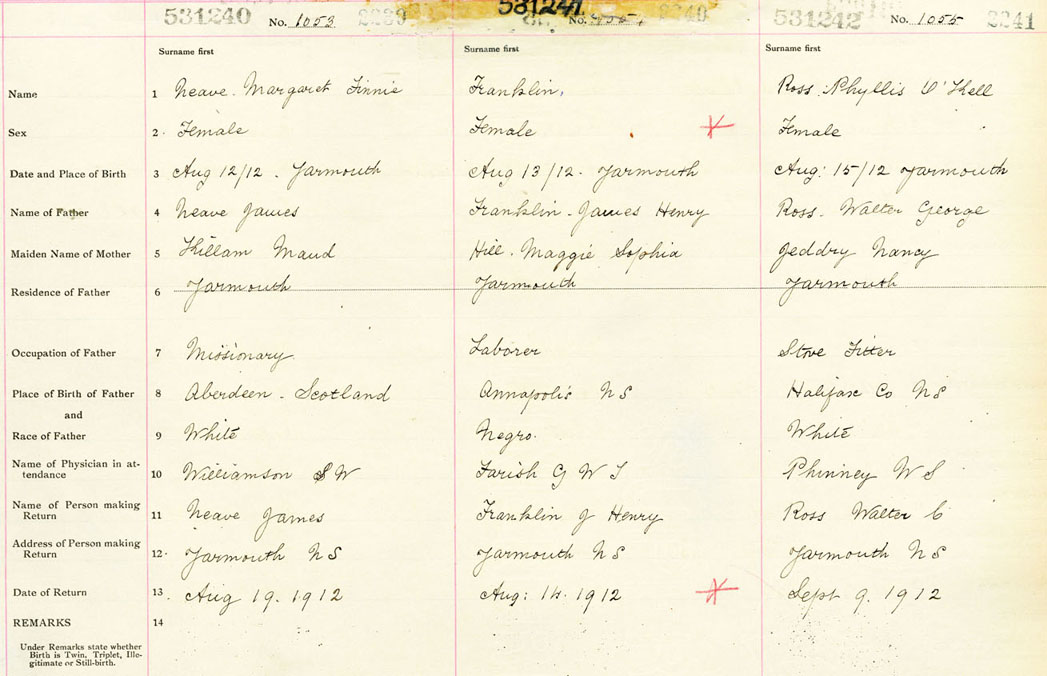 531240 No. 1053 2239 531241 No. 2240 531242 No. 1055 2241
Surname first Surname first Surname first
Name 1 Neave. Margaret Finnie Franklin, Ross. Phyllis O'Kell
Sex 2. Female Female Female
Date and Place of Birth 3 Aug 12/12. Yarmouth Aug 13/12. Yarmouth Aug: 15/12 Yarmouth
Name of Father 4 Neave James Franklin - James Henry Ross. Walter George
Maiden Name of Mother 5 Killam Maud Hill. Maggie Sophia Jeddry Nancy
Residence of Father 6 Yarmouth Yarmouth Yarmouth
Occupation of Father 7 Missionary Laborer Stove Fitter
Place of Birth of Father 8 Aberdeen. Scotland Annapolis NS Halifax Co NS
and
Race of Father 9 White Negro. White
Name of Physician in at-
tendance 10 Williamson S W Farish G W T Phinney W S
Name of Person making
Return 11 Neave James Franklin J Henry Ross Walter G
Address of Person making
Return 12. Yarmouth NS Yarmouth NS Yarmouth NS
Date of Return 13. Aug 19. 1912 Aug: 14. 1912 Sept 9. 1912
REMARKS 14
Under Remarks state whether
Birth is Twin, Triplet, Ille-
gitimate or Still-birth.